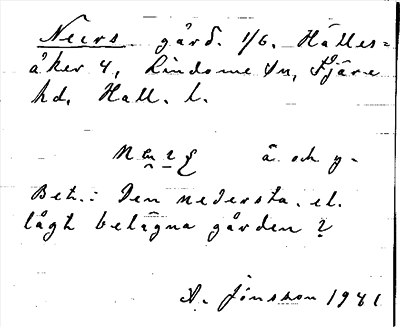 Neers gård. 1/6. Hälles=
åker 4, Lindome sn, Fjäre
hd, Hall. l.
ä. och y.
Bet.: Den nedersta. el.
lågt belägna gården ?
A. Jönsson 1981